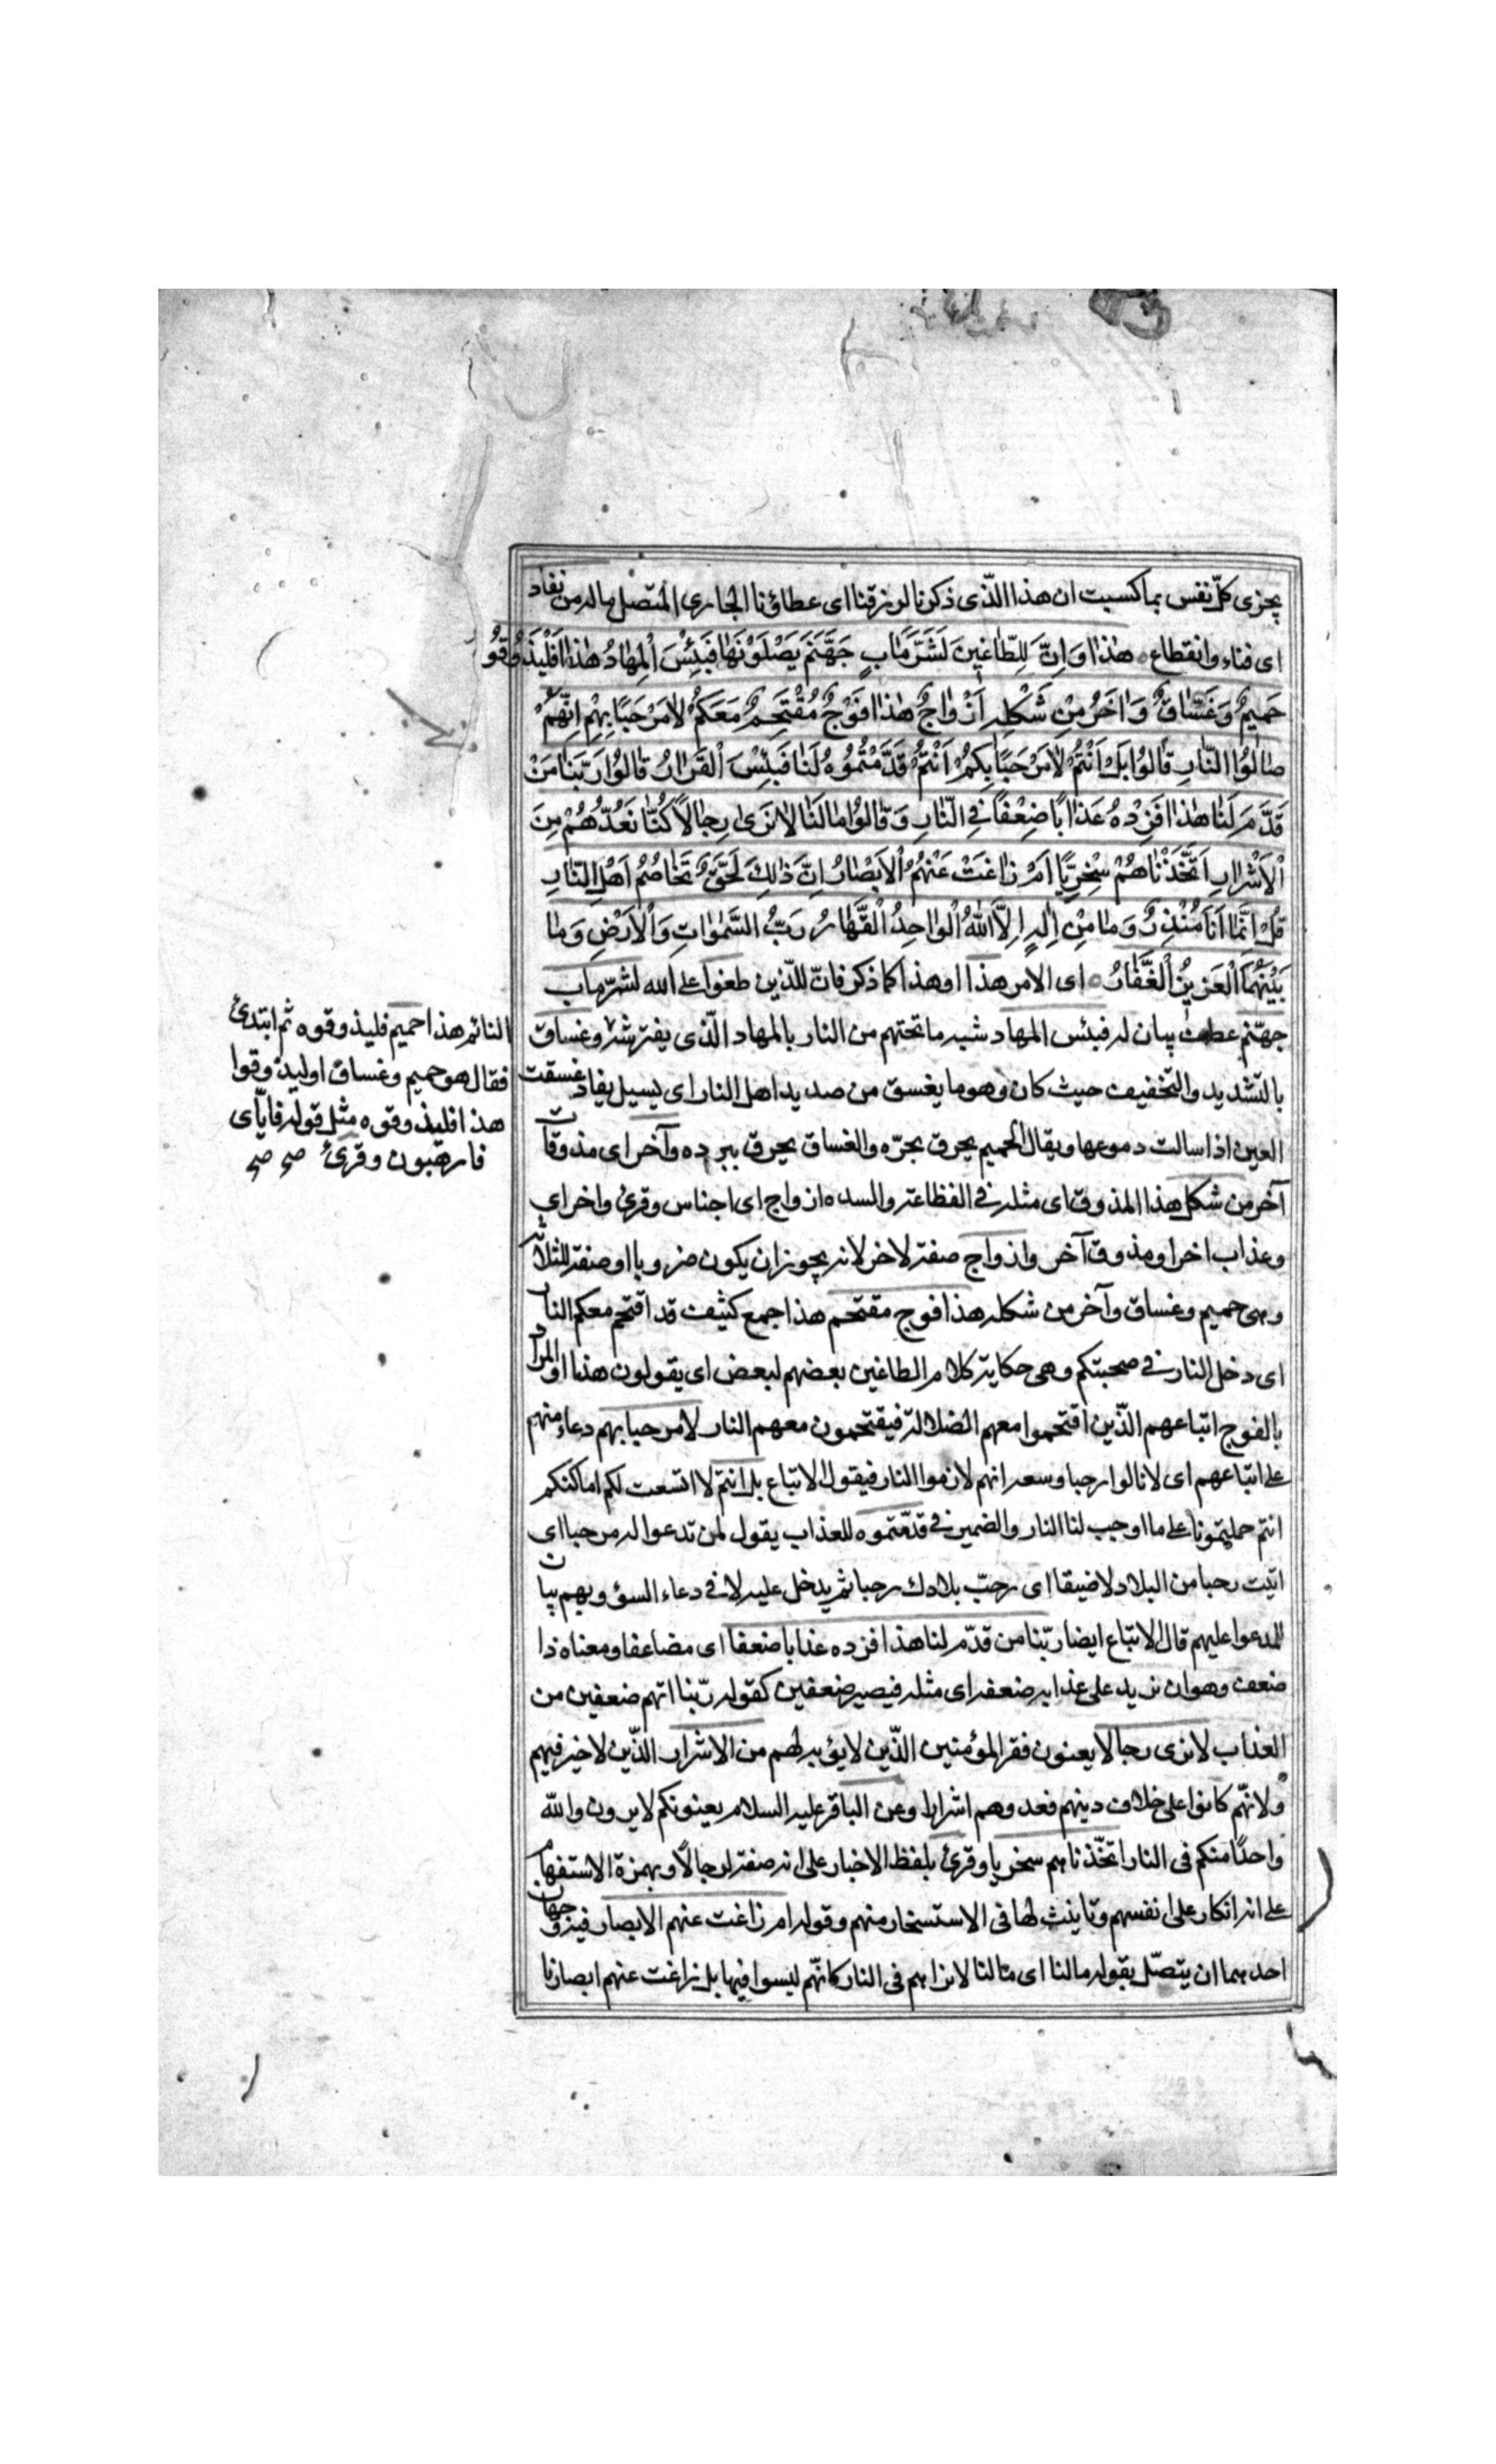 يجزى كلّ نفس بما كسبت ان هذا الّذى ذكرنا لرزقنا اى عطاؤنا الجارى المتّصل ماله من نفاد
اى فناء وانقطاع هٰذا وَاِنَّ لِلطّاغينَ لَشَرَّ مَاٰبٍ جَهَنَّمَ يَصْلَوْنَهٰا فَبِئْسَ الْمِهٰادُ هٰذا فَلْيَذُوقُوُ
حَميمٌ وَغَسّٰاقٌ وَاٰخَرُ مِنْ شَكْلِهِ اَزْوٰاجٌ هٰذا فَوْجٌ مُقْتَحِمٌ مَعَكُمْ لاٰمَرْحَبًا بِهِمْ اِنَّهُمْ
صٰالُوا النّٰارِ قٰالُوا بَلْ اَنْتُمْ لاٰمَرْحَبًا بِكُمْ اَنْتُمْ قَدَّمْتُمُوُهُ لَنٰا فَبِئْسَ الْقَرٰارُ قٰالُوا رَبَّنٰا مَنْ
قَدَّمَ لَنٰا هٰذا فَزِدْهُ عَذٰابًا ضِعْفًا فِي النّٰارِ وَقٰالُوا مٰالَنٰا لاٰنَرىٰ رِجٰالاً كُنّٰا نَعُدُّهُمْ مِنَ
الْاَشْرٰارِ اَتَّخَذْنٰاهُمْ سِخْرِيًّا اَمْ زٰاغَتْ عَنْهُمُ الْاَبْصٰارُ اِنَّ ذٰلِكَ لَحَقٌّ تَخٰاصُمُ اَهْلِ النّٰارِ
قُلْ اِنَّمٰا اَنَا مُنْذِرٌ وَمٰا مِنْ اِلٰهٍ اِلاَّ اللّٰهُ الْوٰاحِدُ الْقَهّٰارُ رَبُّ السَّمٰوٰاتِ وَالْاَرْضِ وَمٰا
بَيْنَهُمَا الْعَزيزُ الْغَفّٰارُ اى الامر هذا او هذا كما ذكر فانّ للّذين طغوا على الله لشرّ مآب
جهنّم عطف بيان له فبئس المهاد شبه ما تحتهم من النار بالمهاد الّذى يفترشه وغساق
بالتشديد والتخفيف حيث كان وهو ما يغسق من صديد اهل النار اى يسيل يقاد غسقت
العين اذا سالت دموعها ويقال الحميم يحرق بحرّه والغساق يحرق ببرده وآخر اى مذوقات
آخر من شكل هذا المذوق اى مثله فى الفظاعة والسده ازواج اى اجناس وقرئ واخر اى
وعذاب اخر او مذوق آخر وازواج صفة لاخر لانه يجوز ان يكون ضروبا او صفة للثلاثة
وهى حميم وغساق وآخر من شكله هذا فوج مقتحم هذا جمع كثيف قد اقتحم معكم النار
اى دخل النار فى صحبتكم وهى حكاية كلام الطاغين بعضهم لبعض اى يقولون هذا والمراد
بالفوج اتباعهم الّذين اقتحموا معهم الضلالة فيقتحمون معهم النار لامرحبا بهم دعاء منهم
على اتباعهم اى لا نالوا رحبا وسعه انهم لازموا النار فيقول الاتباع بل انتم لا اتسعت لكم اماكنكم
انتم حملتمونا على ما اوجب لنا النار والضمير فى قدّمتموه للعذاب يقول لمن تدعوا له مرحبا اى
اتيت رحبا من البلاد لا ضيقا اى رحبّ بلادك رحبا ثم يدخل عليه لا فى دعاء السؤ وبهم بيان
للمدعوا عليهم قال الاتباع ايضا ربّنا من قدّم لنا هذا فزده عذابا ضعفا اى مضاعفا ومعناه ذا
ضعف وهو ان نزيد على عذابه ضعفه اى مثله فيصير ضعفين كقوله ربّنا اتهم ضعفين من
العذاب لا نرى رجالا يعنون فقر المؤمنين الّذين لا يؤبه لهم من الاشرار الّذين لا خير فيهم
ولانّهم كانوا على خلاف دينهم فعدوهم اشرارا وعن الباقر عليه السلام يعنونكم لا يرون والله
واحدًا منكم فى النار اتخّذناهم سخريا وقرئ بلفظ الاخبار على انه صفة لرجالاً وبهمزة الاستفهام
على انه انكار على انفسهم وتانيث لها فى الاستسخار منهم وقوله ام زاغت عنهم الابصار فيه وجهان
احدهما ان يتصّل بقوله مالنا اى مالنا لا نراهم فى النار كانّهم ليسوا فيها بل زاغت عنهم ابصارنا
النائم هذا حميم فليذوقوه ثم ابتدئ
فقال هو حميم وغساق او ليذوقوا
هذا فليذوقوه مثل قوله فايّاى
فارهبون وقرئ صح صح